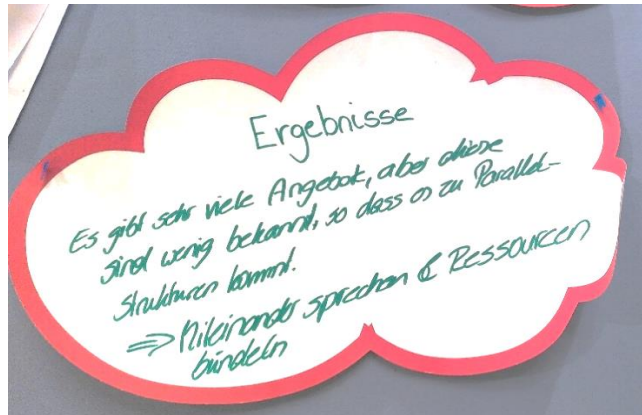 Ergebnisse
Es gibt sehr viele Angebote, aber diese
sind wenig bekannt, so dass es zu Parallel-
strukturen kommt.
⇒ Miteinander sprechen & Ressourcen
bündeln